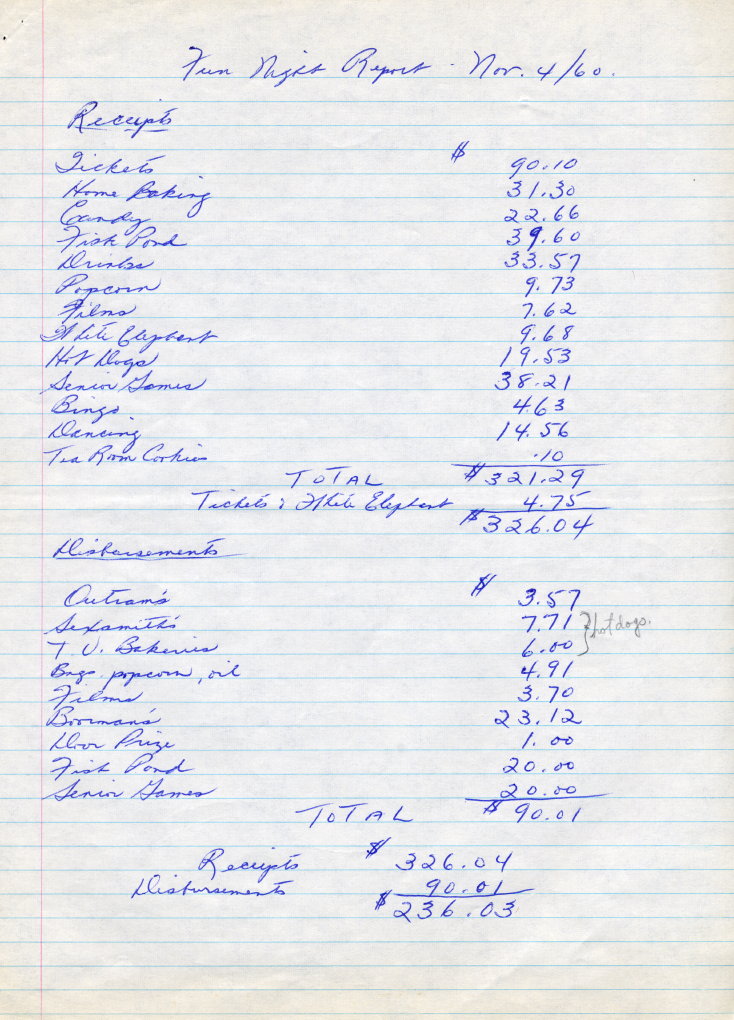 Fun Night Report - Nov. 4/60.
Receipts
Tickets $ 90.10
Home Baking 31.30
Candy 22.66
Fish Pond 39.60
Drinks 33.57
Popcorn 9.73
Films 7.62
White Elephant 9.68
Hot Dogs 19.53
Senior Games 38.21
Bingo 4.63
Dancing 14.56
Tea Room Cookies .10
TOTAL $ 321.29
Tickets & White Elephant 4.75
$ 326.04
Disbursements
Outram's $ 3.57
Sexsmith's 7.71 } hot dogs.
T. V. Bakeries 6.00
Bags, popcorn, oil 4.91
Films 3.70
Boorman's 23.12
Door Prize 1.00
Fish Pond 20.00
Senior Games 20.00
TOTAL $ 90.01
Receipts $ 326.04
Disbursements 90.01
$ 236.03